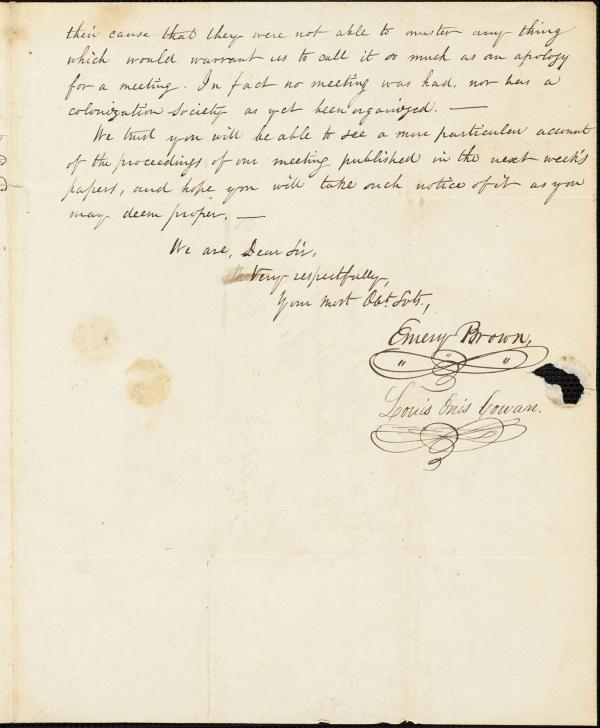 their cause that they were not able to muster any thing
which would warrant us to call it so much as an apology
for a meeting. In fact no meeting was had, nor has a
colonization society as yet been organized. —
We trust you will be able to see a more particular account
of the proceedings of our meeting published in the next week's
papers, and hope you will take such notice of it as you
may deem proper. —
We are, Dear Sir,
Very respectfully,
Your most Obt. Svts.,
Emery Brown,
" " "
Louis Onis Cowan.